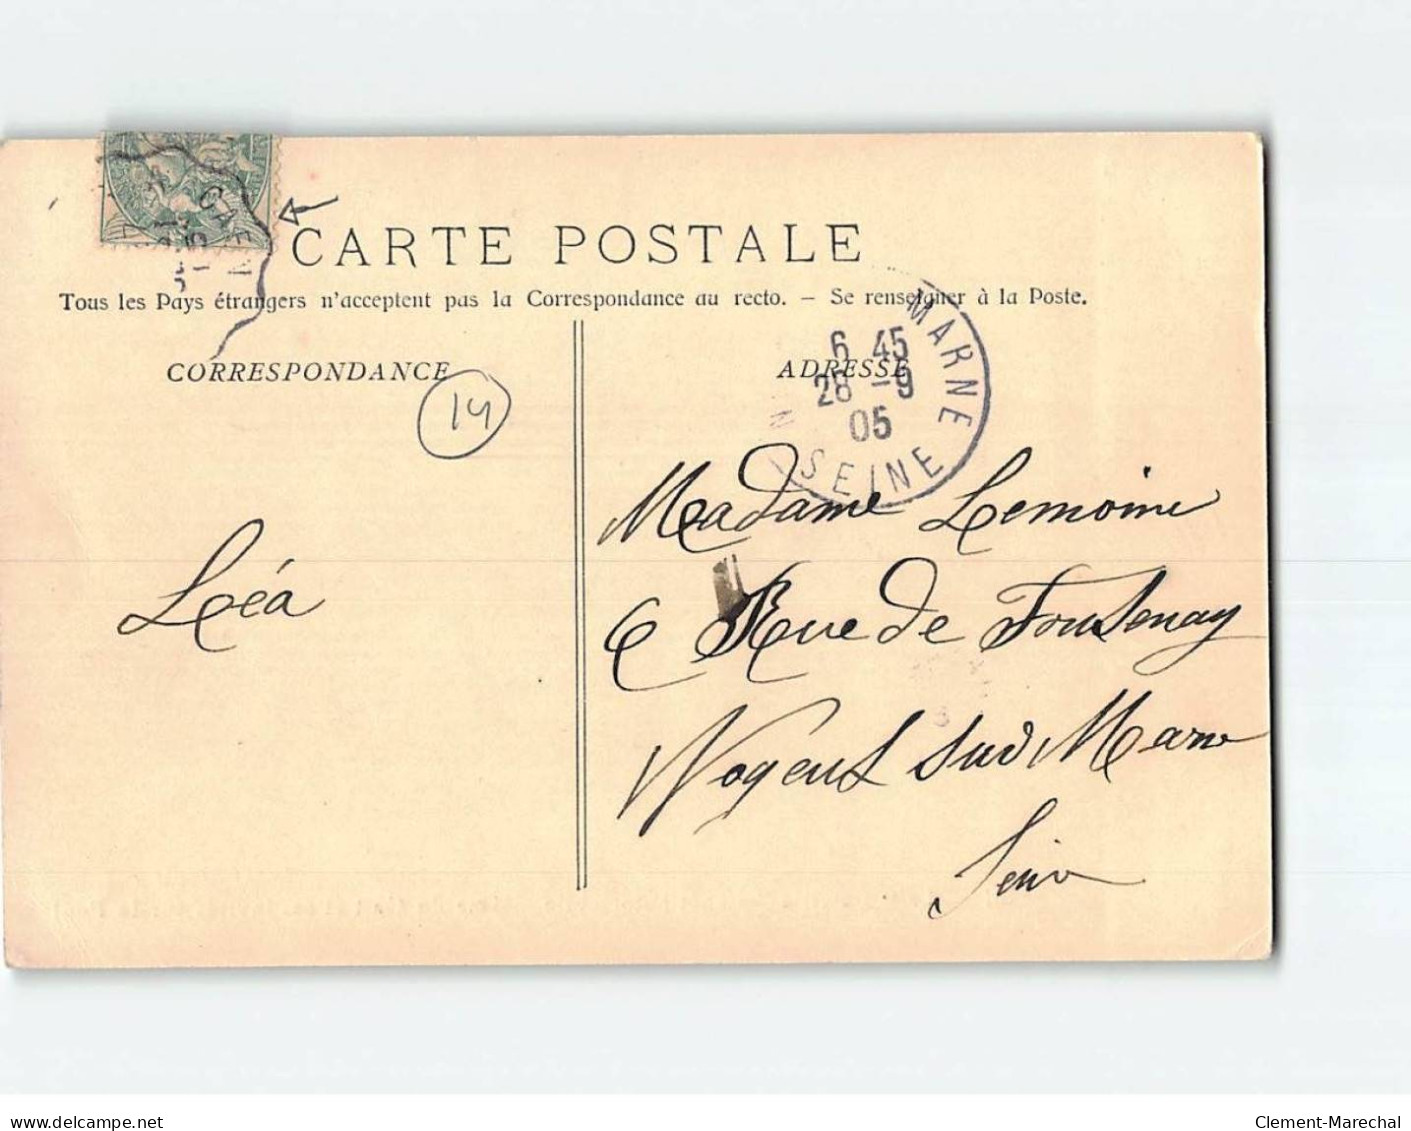 CAEN
CARTE POSTALE
Tous les Pays étrangers n'acceptent pas la Correspondance au recto. — Se renseigner à la Poste.
CORRESPONDANCE
14
ADRESSE
MARNE
6 45
28 -9
05
SEINE
Léa
Madame Lemoine
6 Rue de Fontenay
Nogent sur Marne
Seine
www.delcampe.net
Clement-Marechal